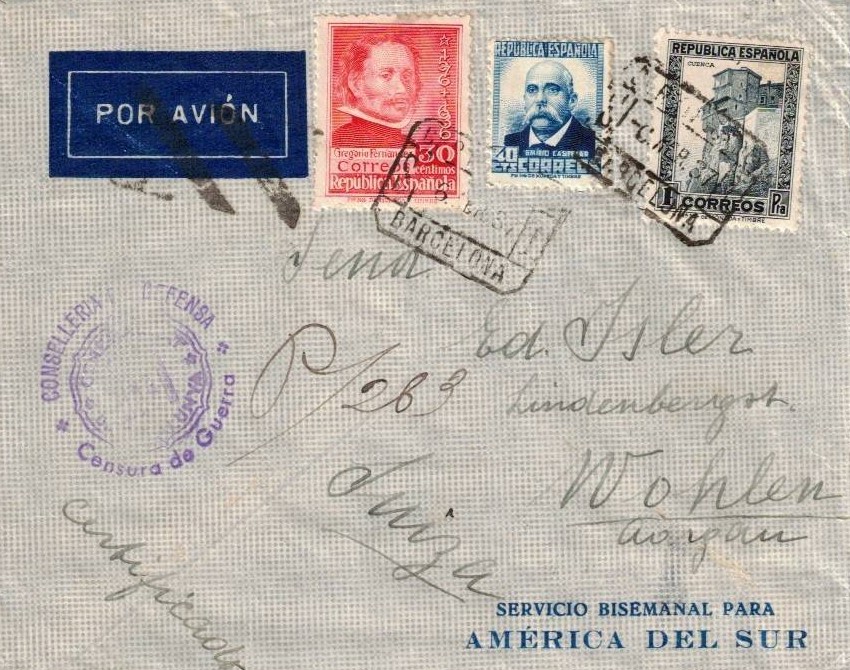 POR AVIÓN
★ 1636 + 1936
Gregorio Fernández
30
Correos céntimos
República Española
REPÚBLICA ESPAÑOLA
EMILIO CASTELAR
40
CTS CORREOS
REPÚBLICA ESPAÑOLA
CUENCA
1 CORREOS Pta
BARCELONA
BARCELONA
CONSELLERIA DEFENSA
Censura de Guerra
Ed. Isler
P/263
Lindenbergst.
Suiza
Wohlen
Aargau
certificado
SERVICIO BISEMANAL PARA
AMÉRICA DEL SUR